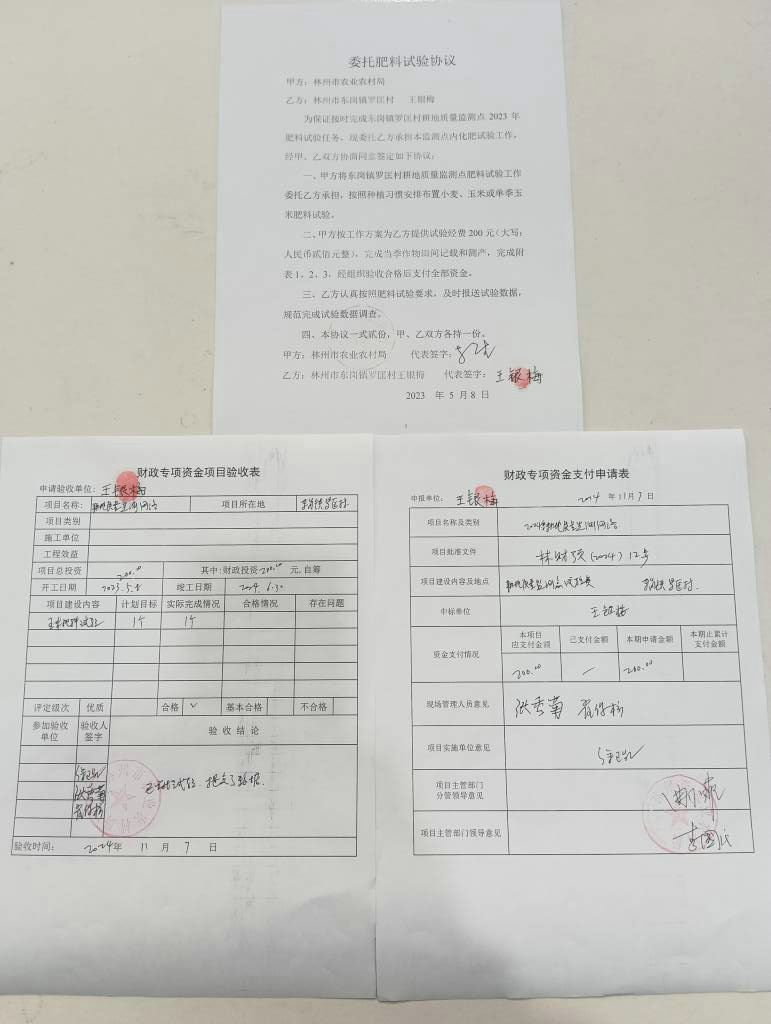 委托肥料试验协议
甲方：林州市农业农村局
乙方：林州市东岗镇罗匡村 王银梅
为保证按时完成东岗镇罗匡村耕地质量监测点 2023 年
肥料试验任务，现委托乙方承担本监测点内化肥试验工作，
经甲、乙双方协商同意签定如下协议：
一、甲方将东岗镇罗匡村耕地质量监测点肥料试验工作
委托乙方承担，按照种植习惯安排布置小麦、玉米或单季玉
米肥料试验。
二、甲方按工作方案为乙方提供试验经费 200 元（大写：
人民币贰佰元整），完成当季作物田间记载和测产，完成附
表 1、2、3，经组织验收合格后支付全部资金。
三、乙方认真按照肥料试验要求，及时报送试验数据，
规范完成试验数据调查。
四、本协议一式贰份，甲、乙双方各持一份。
甲方：林州市农业农村局 代表签字：
乙方：林州市东岗镇罗匡村王银梅 代表签字：王银梅
2023 年 5 月 8 日
财政专项资金项目验收表
申请验收单位：王银梅
项目名称： 耕地质量监测网络 项目所在地 东岗镇罗匡村
项目类别
施工单位
工程效益
项目总投资 200.00 其中：财政投资 200.00 元，自筹
开工日期 2023.5.8 竣工日期 2024.6.30
项目建设内容 计划目标 实际完成情况 合格情况 存在问题
玉米肥料试验 1个 1个
评定级次 优质 合格 √ 基本合格 不合格
参加验收单位 验收人签字 验收结论
张秀菊
已完成试验，提交了数据.
验收时间： 2024年 11 月 7 日
财政专项资金支付申请表
申报单位： 王银梅 2024 年 11月 7 日
项目名称及类别 2024年耕地质量监测网络
项目批准文件 林财预（2024）12号
项目建设内容及地点 耕地质量监测点试验费 东岗镇罗匡村.
中标单位 王银梅
资金支付情况 本项目应支付金额 已支付金额 本期申请金额 本期止累计支付金额
200.00 — 200.00
现场管理人员意见 张秀菊
项目实施单位意见
项目主管部门分管领导意见
项目主管部门领导意见